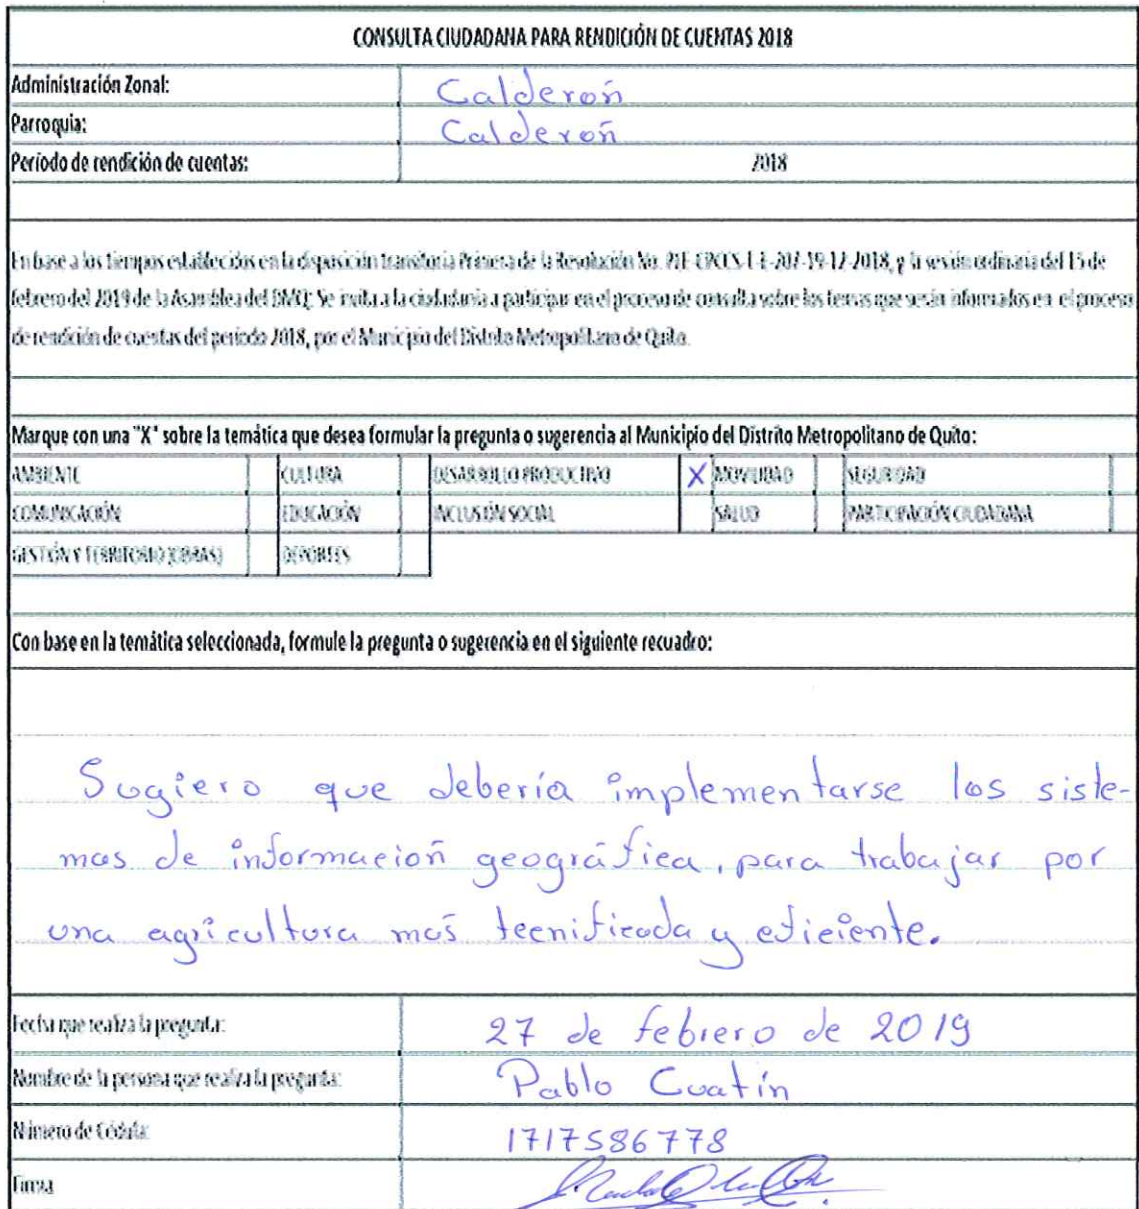 CONSULTA CIUDADANA PARA RENDICIÓN DE CUENTAS 2018
Administración Zonal: Calderón
Parroquia: Calderón
Período de rendición de cuentas: 2018
En base a los tiempos establecidos en la disposición transitoria Primera de la Resolución No. PLE-CPCCS-T-E-207-19-12-2018, y la sesión ordinaria del 15 de
febrero del 2019 de la Asamblea del DMQ; Se invita a la ciudadanía a participar en el proceso de consulta sobre los temas que serán informados en el proceso
de rendición de cuentas del periodo 2018, por el Municipio del Distrito Metropolitano de Quito.
Marque con una "X" sobre la temática que desea formular la pregunta o sugerencia al Municipio del Distrito Metropolitano de Quito:
AMBIENTE CULTURA DESARROLLO PRODUCTIVO X MOVILIDAD SEGURIDAD
COMUNICACIÓN EDUCACIÓN INCLUSIÓN SOCIAL SALUD PARTICIPACIÓN CIUDADANA
GESTIÓN Y TERRITORIO (OBRAS) DEPORTES
Con base en la temática seleccionada, formule la pregunta o sugerencia en el siguiente recuadro:
Sugiero que debería implementarse los siste-
mas de información geográfica, para trabajar por
una agricultura más tecnificada y eficiente.
Fecha que realiza la pregunta: 27 de febrero de 2019
Nombre de la persona que realiza la pregunta: Pablo Cuatín
Número de Cédula: 1717586778
Firma